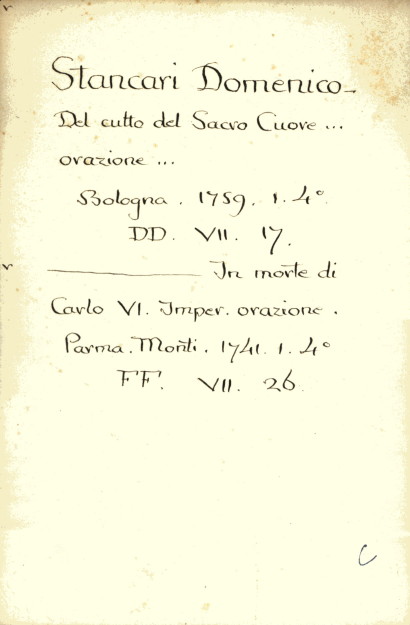 Stancari Domenico_
Del culto del Sacro Cuore ...
orazione ...
Bologna . 1759. 1. 4°
DD. VII. 17.
In morte di
Carlo VI. Imper. orazione .
Parma. Monti . 1741. 1. 4°
FF. VII. 26.
C